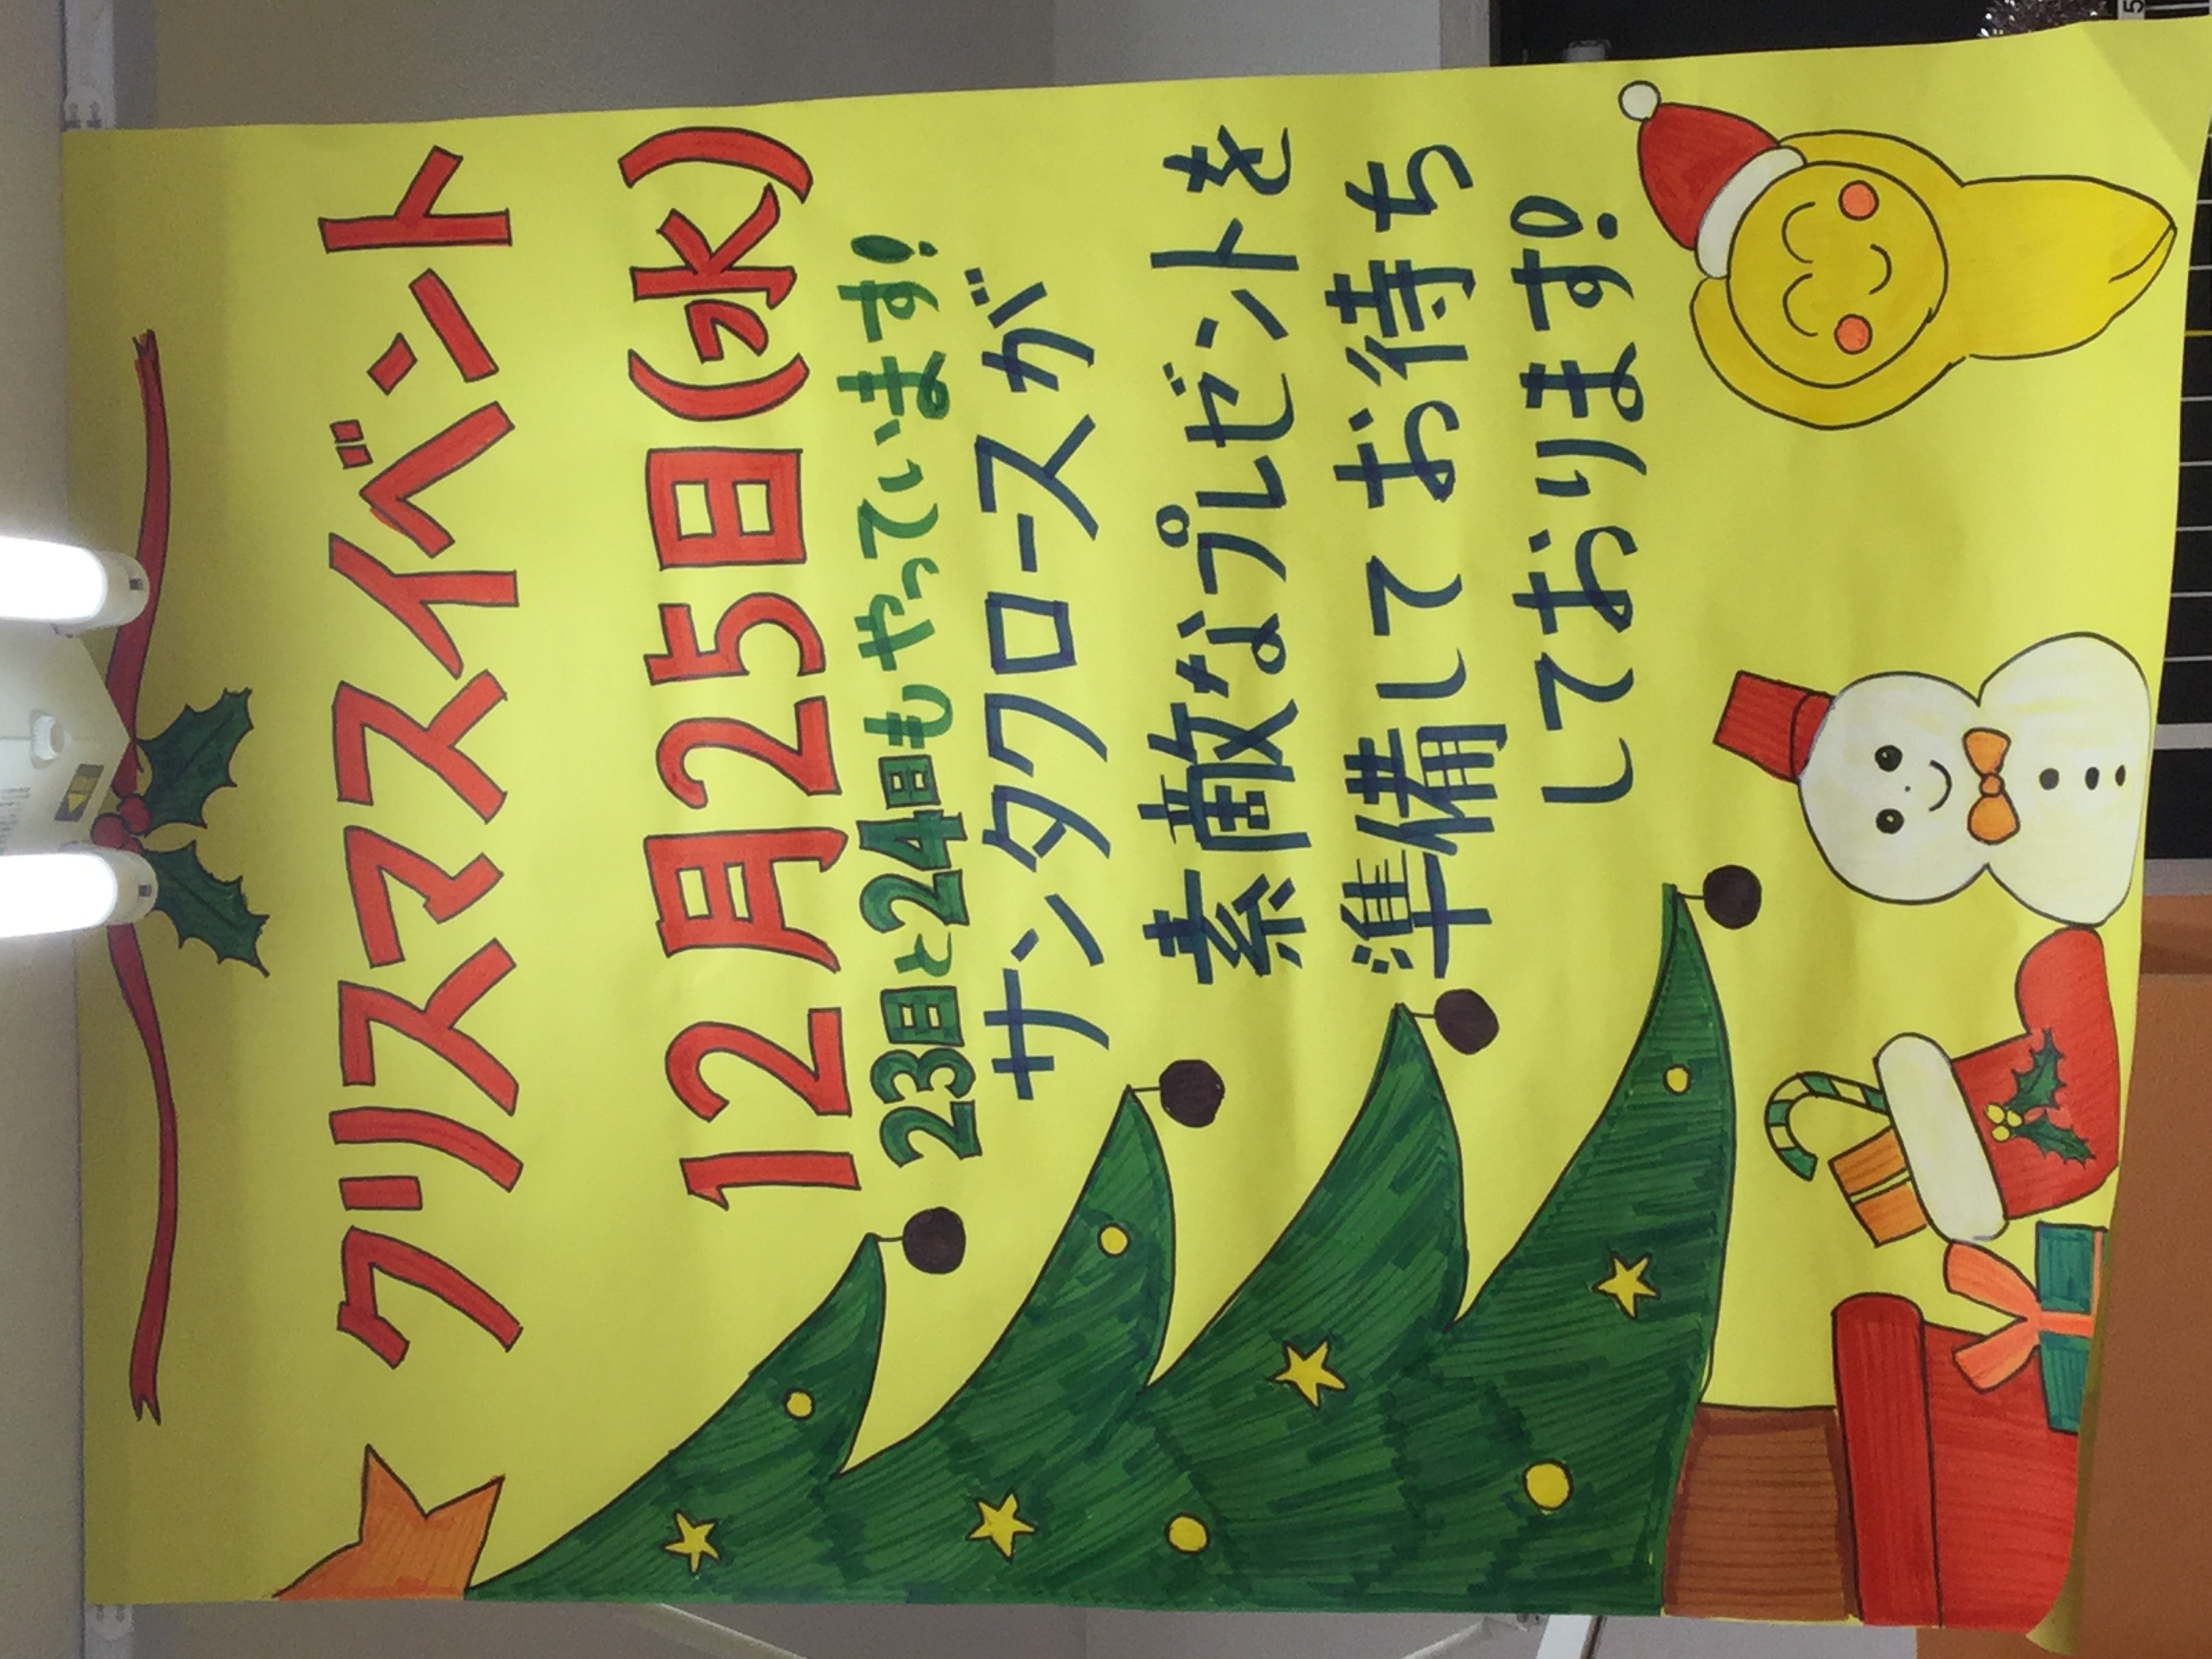 クリスマスイベント
12月25日(水)
23日と24日もやっています!
サンタクロースが
素敵なプレゼントを
準備してお待ち
しております!